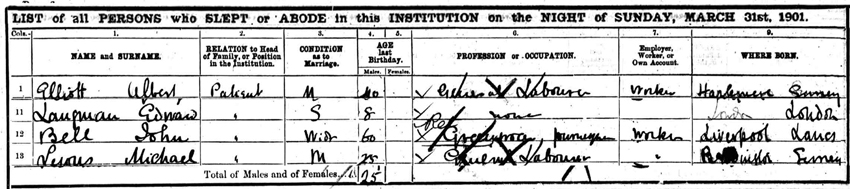 LIST of all PERSONS who SLEPT or ABODE in this INSTITUTION on the NIGHT of SUNDAY, MARCH 31st, 1901.
Cols.— 1. 2. 3. 4. 5. 6. 7. 9.
NAME and SURNAME. RELATION to Head of Family, or Position in the Institution. CONDITION as to Marriage. AGE last Birthday. Males. Females. PROFESSION or OCCUPATION. Employer, Worker, or Own Account. WHERE BORN.
1 Elliott Albert Patient M 40 General Labourer Worker Haslemere Surrey
11 Langman Edward " S 8 none London London
12 Bell John " Widr 60 Worker Liverpool Lancs
13 Michael " M Labourer " Surrey
Total of Males and of Females... 25